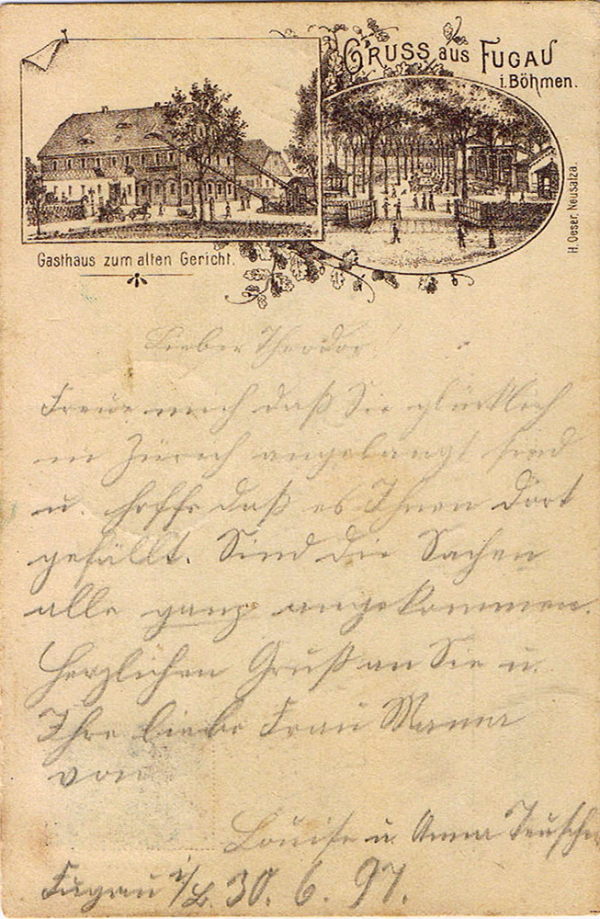 GRUSS aus FUGAU
i. Böhmen.
H. Oeser, Neusalza.
Gasthaus zum alten Gericht.
Lieber Theodor!
Freue mich daß Sie glücklich
in Zürich angelangt sind
u. hoffe daß es Ihnen dort
gefällt. Sind die Sachen
alle ganz angekommen.
Herzlichen Gruß an Sie u.
Ihre liebe Frau Mama
von
Louise u. Anna
Fugau 30. 6. 97.